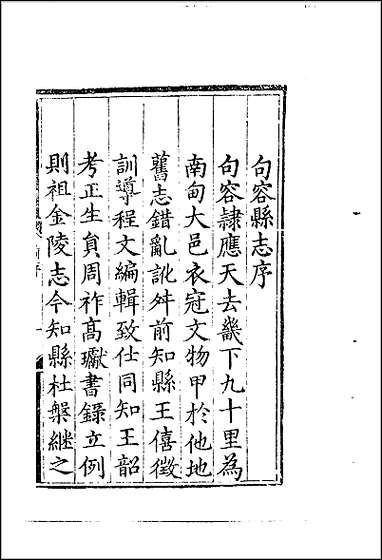 句容縣志序
句容隷應天去畿下九十里為
南甸大邑衣冠文物甲於他地
舊志錯亂訛舛前知縣王僖徵
訓導程文編輯致仕同知王韶
考正生員周祚高瓛書錄立例
則祖金陵志今知縣杜槃継之